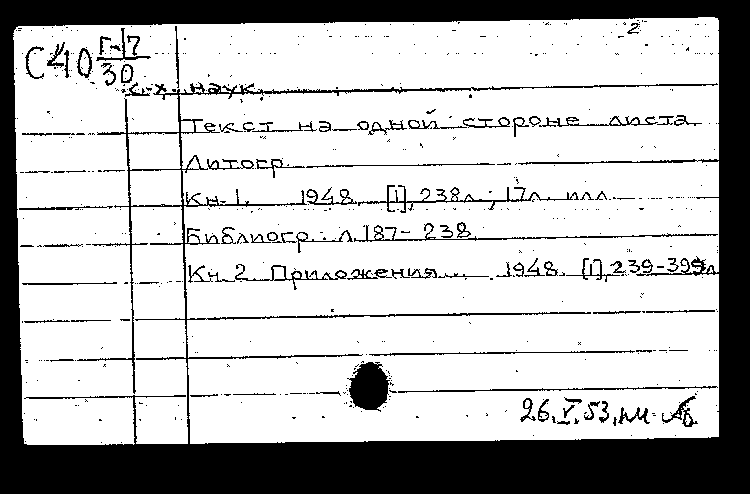 2
С40 Г-17
30
с.-х. наук.
Текст на одной стороне листа
Литогр.
Кн. 1. 1948. [1], 238л.; 17л. илл.
Библиогр.: л. 187-238.
Кн. 2. Приложения... 1948. [1], 239-395л
26.V.53.